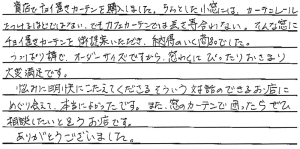 貴店でチョイ置きカーテンを購入しました。ちょっとした小窓には、カーテンレール
をつけるほどではない、でもカフェカーテンでは丈で寄合わない。そんな窓に
チョイ置きカーテンを御提案いただき、納得のいく商品でした。
つっぱり棒で、オーダーサイズですから、窓わくにぴったりおさまり
大変満足です。
悩みに明快にこたえてくださるそういう対話のできるお店に
めぐり会えて、本当によかったです。また、窓のカーテンで困ったらぜひ
相談したいと思うお店です。
ありがとうございました。